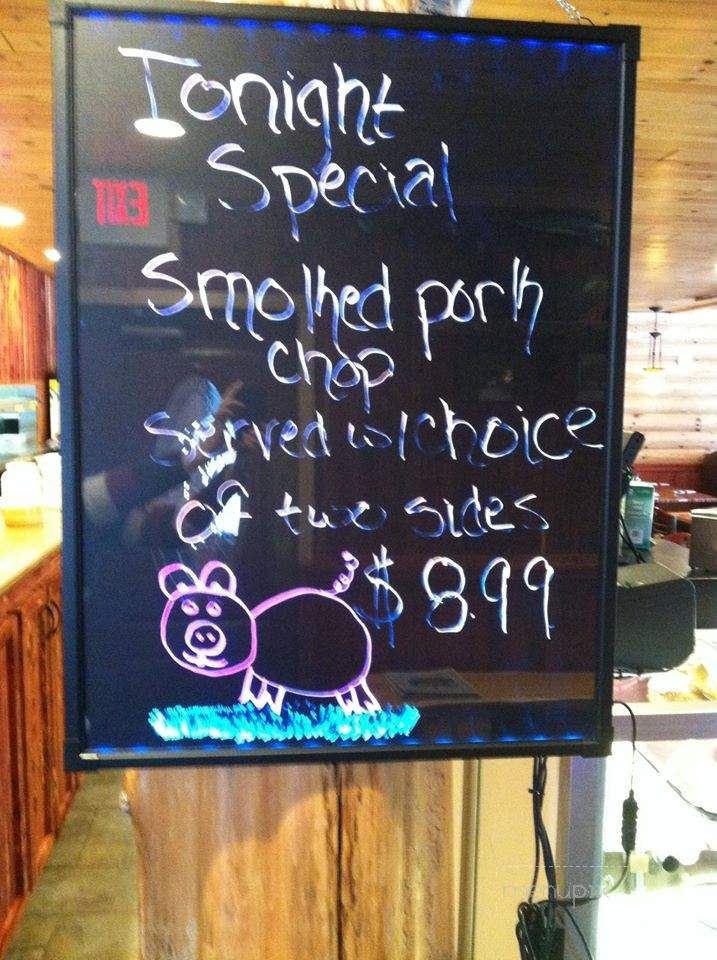 Tonight
Special
EXIT
Smoked pork
chop
Served w/choice
of two sides
$8.99
menupix